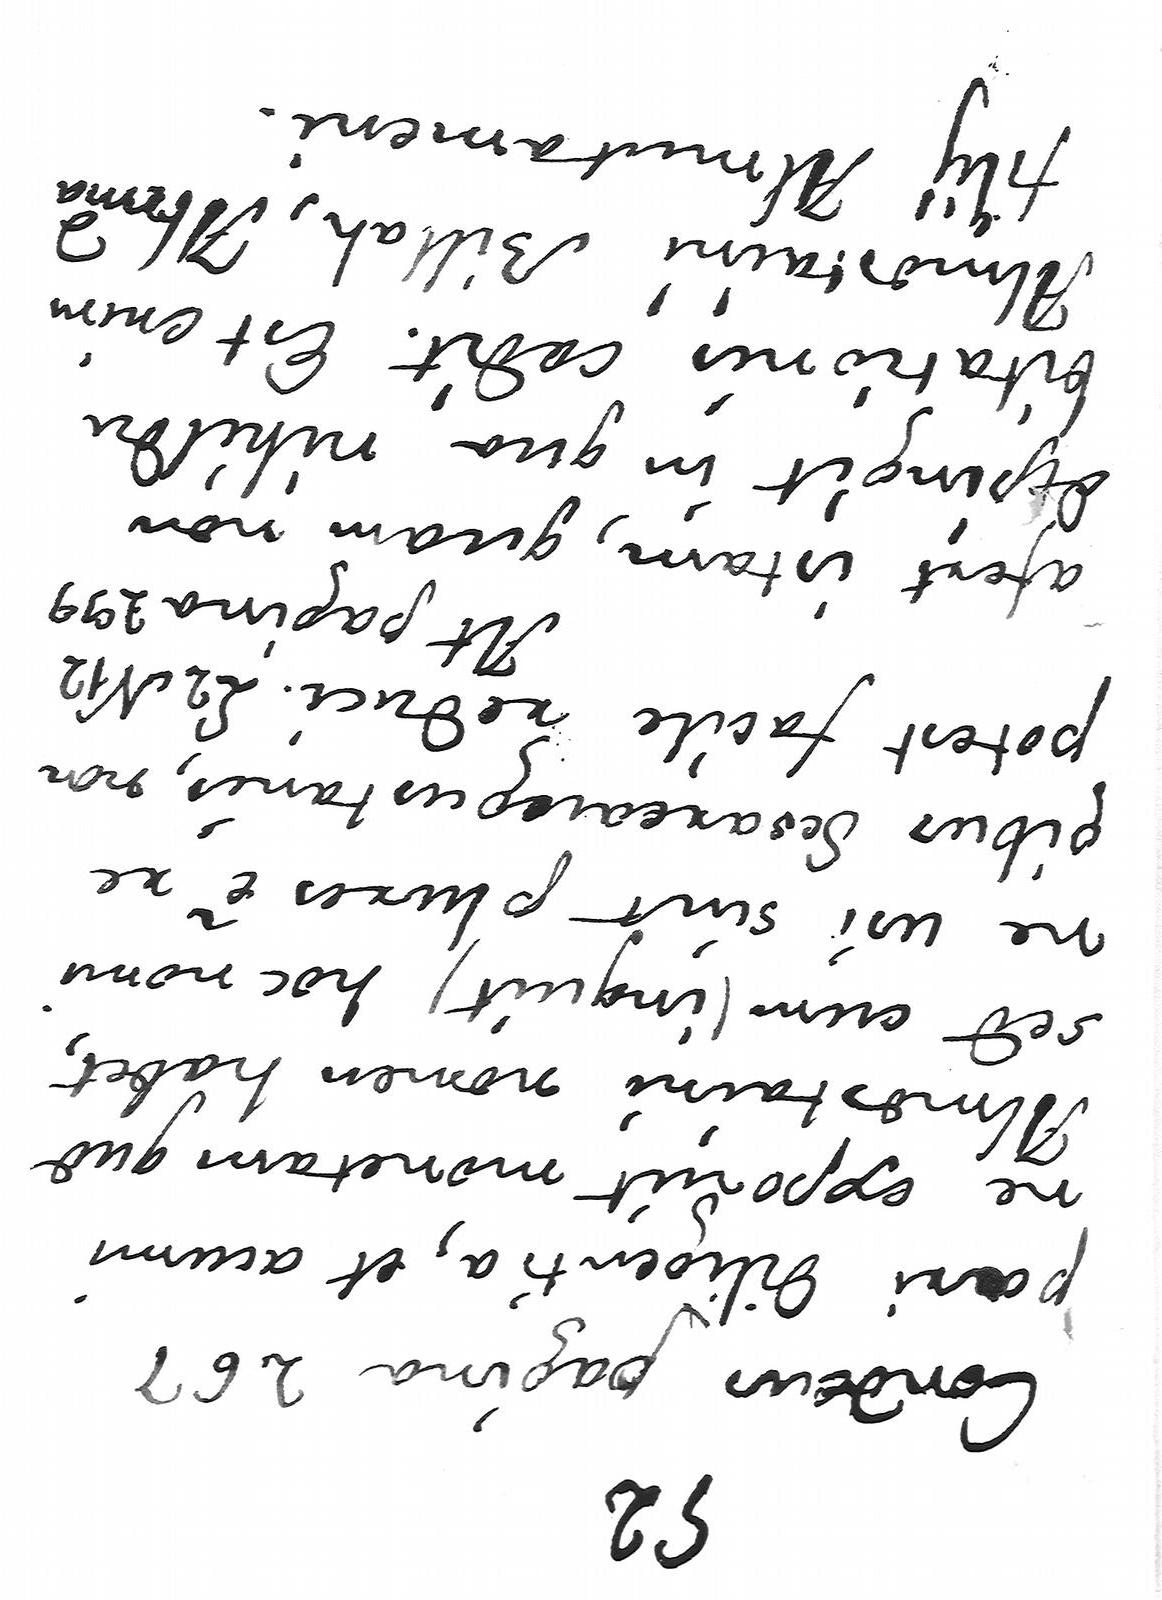 52
Condeus pagina 267
pari diligentia, et acumi
ne exponit monetam quae
Almostaini nomen habet,
sed cum (inquit) hoc nomi
ne usi sint plures è re
gibus Cesareaugustanis, non
potest facile reduci. L2 N12
At pagina 299
afert istam, quam non
depingit in qua nihil du
bitationis cadit. Est enim
Almostaini Billah, Ahmad
filij Almutameni.